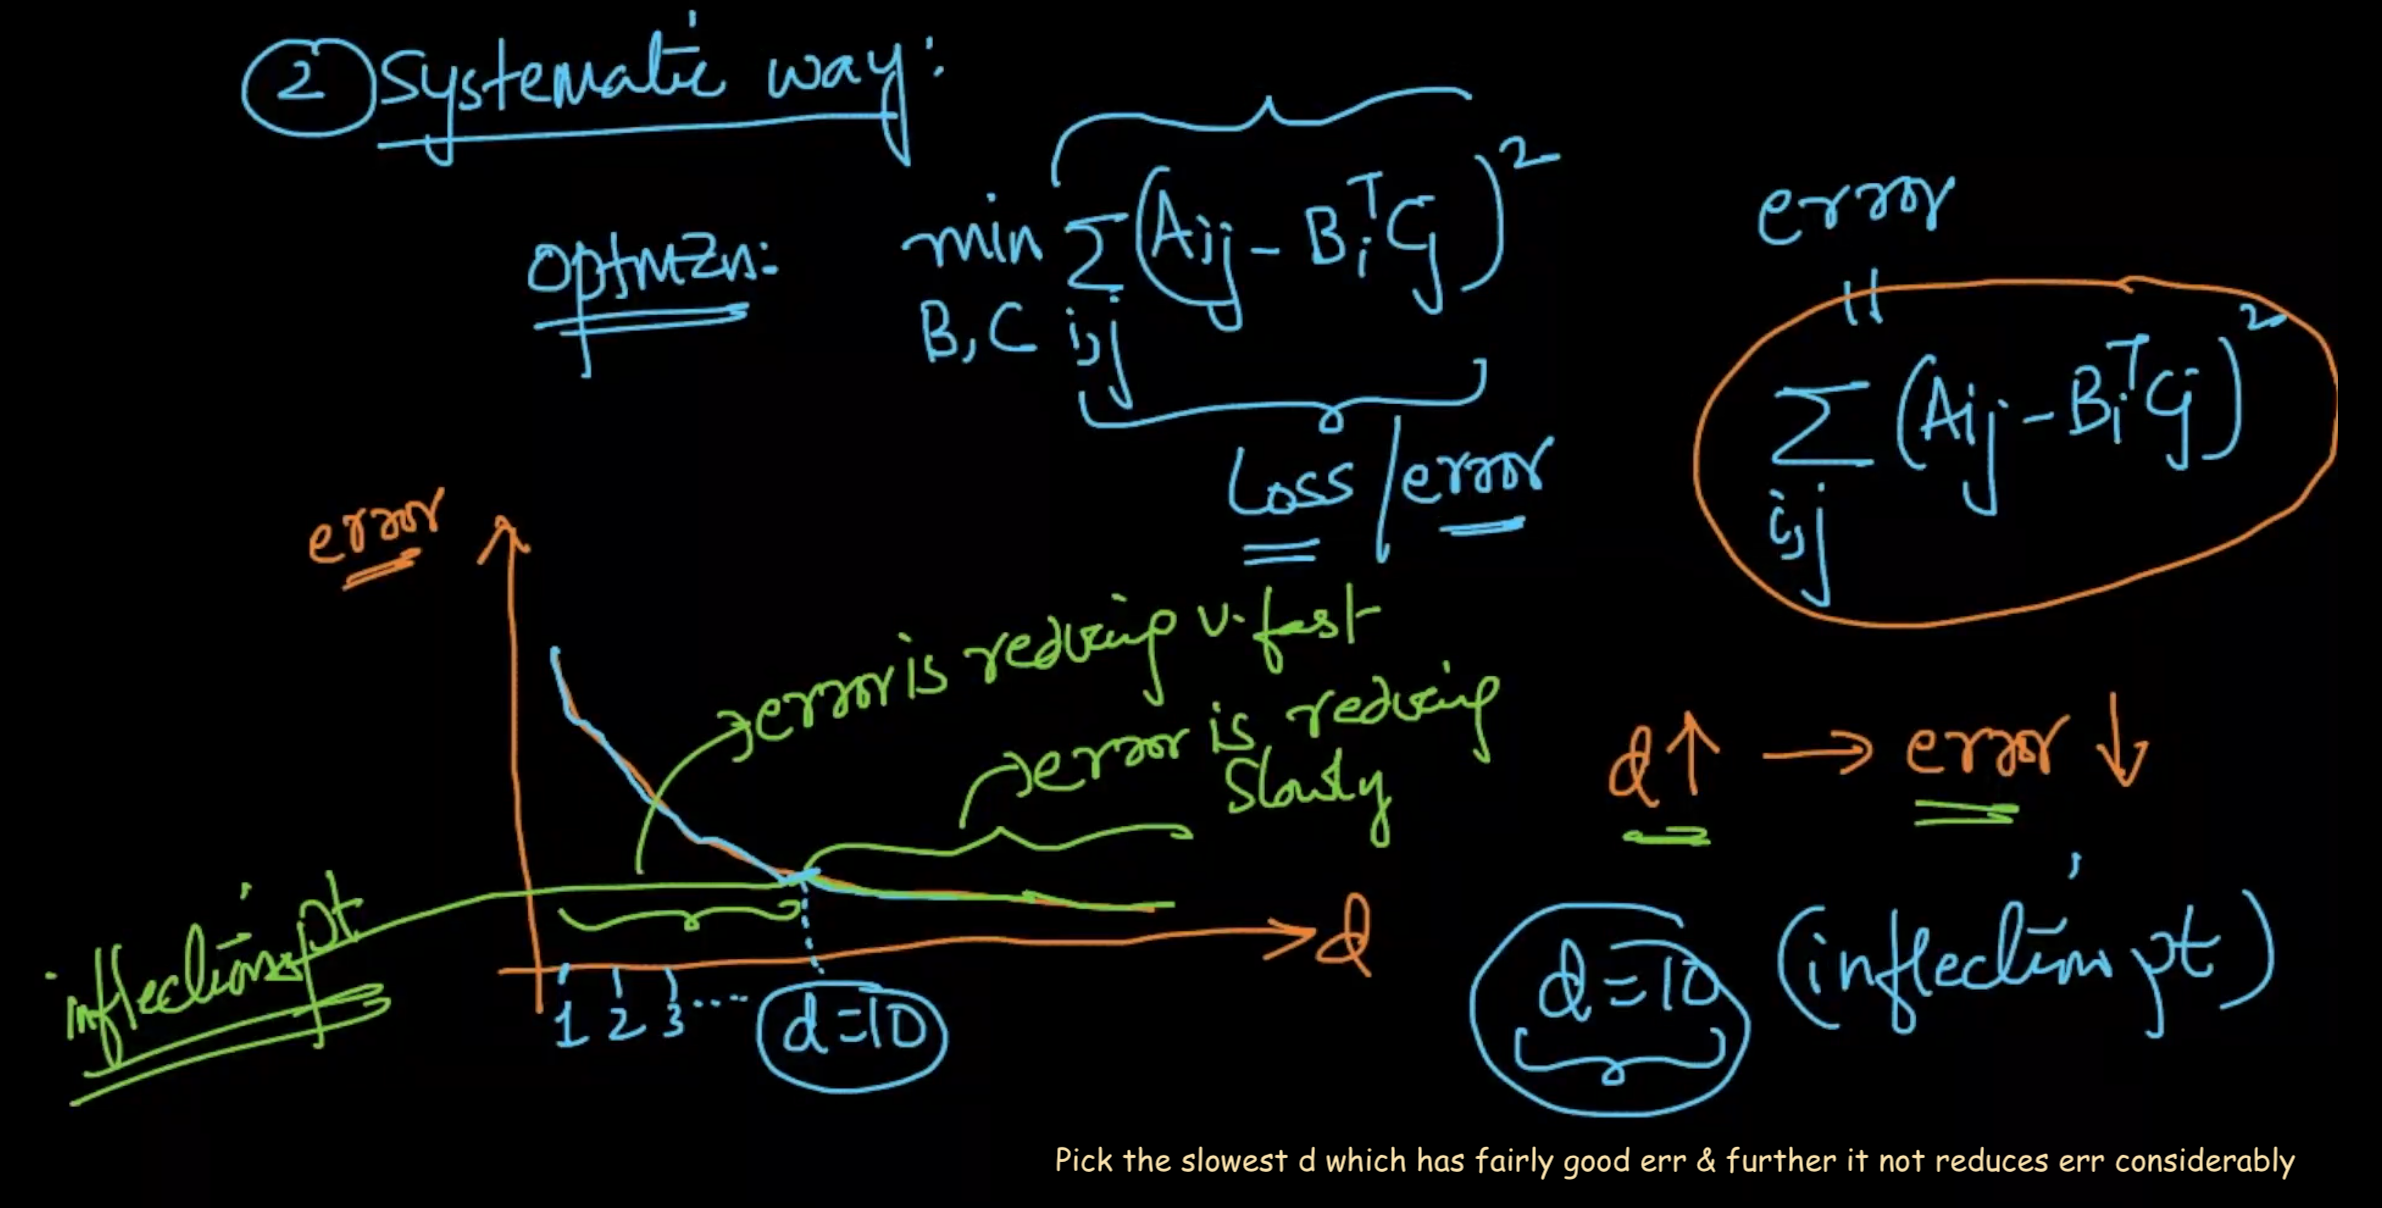 ② Systematic way:
optmzn: min Σ (Aij - BiᵀCj)²
B, C i,j
Loss / error
error
||
Σ (Aij - BiᵀCj)²
i,j
error
error is reducing v.fast
error is reducing
slowly
d↑ → error ↓
inflection pt
d
1 2 3 .... d=10
d=10 (inflection pt)
Pick the slowest d which has fairly good err & further it not reduces err considerably